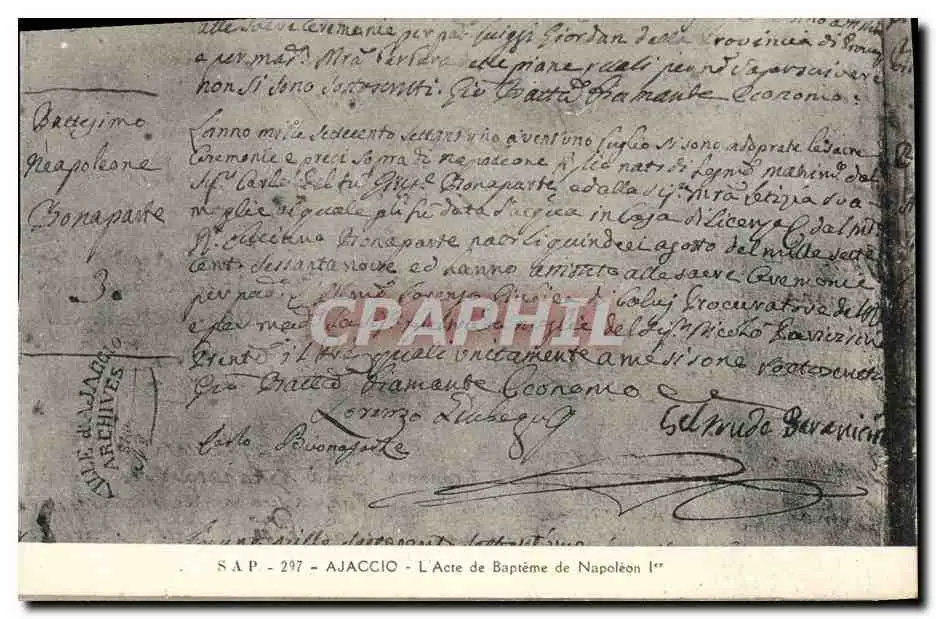 alle sacre Ceremonie per pad. Luiggi Giordan della Provincia di
e per mad. Mra Barbara
non si sono sottoscritti. Gio Batta Diamante Economo.
Battesimo
Neapoleone
Bonaparte
3.
L'anno mille settecento settant'uno a vent'uno luglio si sono adoprate le sacre
Ceremonie e preci sopra di Napoleone figlio nato di legmo matrimo dal
Sigr. Carlo del Giusè Bonaparte, e dalla Sigra Mra Letizia sua
moglie al quale gli fu data l'acqua in Casa di licenza dal
R. Luciano Bonaparte nato li quindici agosto del mille sette
cento sessanta nove ed hanno assistito alle sacre Ceremonie
per pad. Lorenzo di Procuratore del
e per mad. la moglie del Sigr. Nicolò Paravicini
Presente il Pre quali unitamente a me si sono sottoscritti
Gio Batta Diamante Economo
Lorenzo
Geltruda Paravicini
Carlo Buonaparte
VILLE d'AJACCIO
ARCHIVES
CPARAMA
S A P - 297 - AJACCIO - L'Acte de Baptême de Napoléon Ier